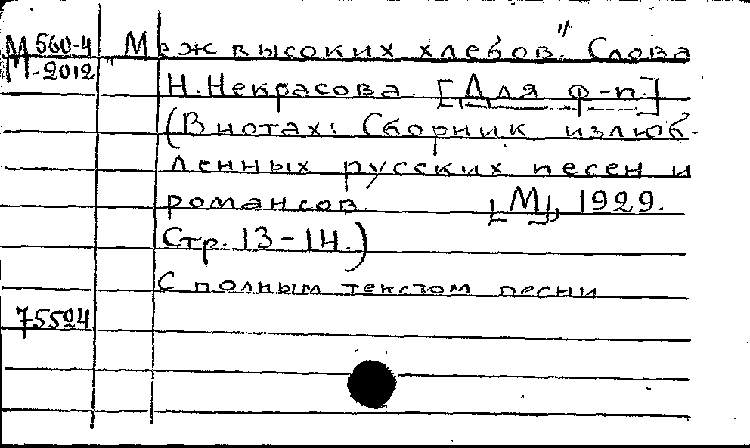 М 560-4
М-2012
"Меж высоких хлебов". Слова
Н. Некрасова. [Для ф-п]
(В нотах: Сборник излюб-
ленных русских песен и
романсов. [М], 1929.
Стр. 13-14.)
С полным текстом песни
75524